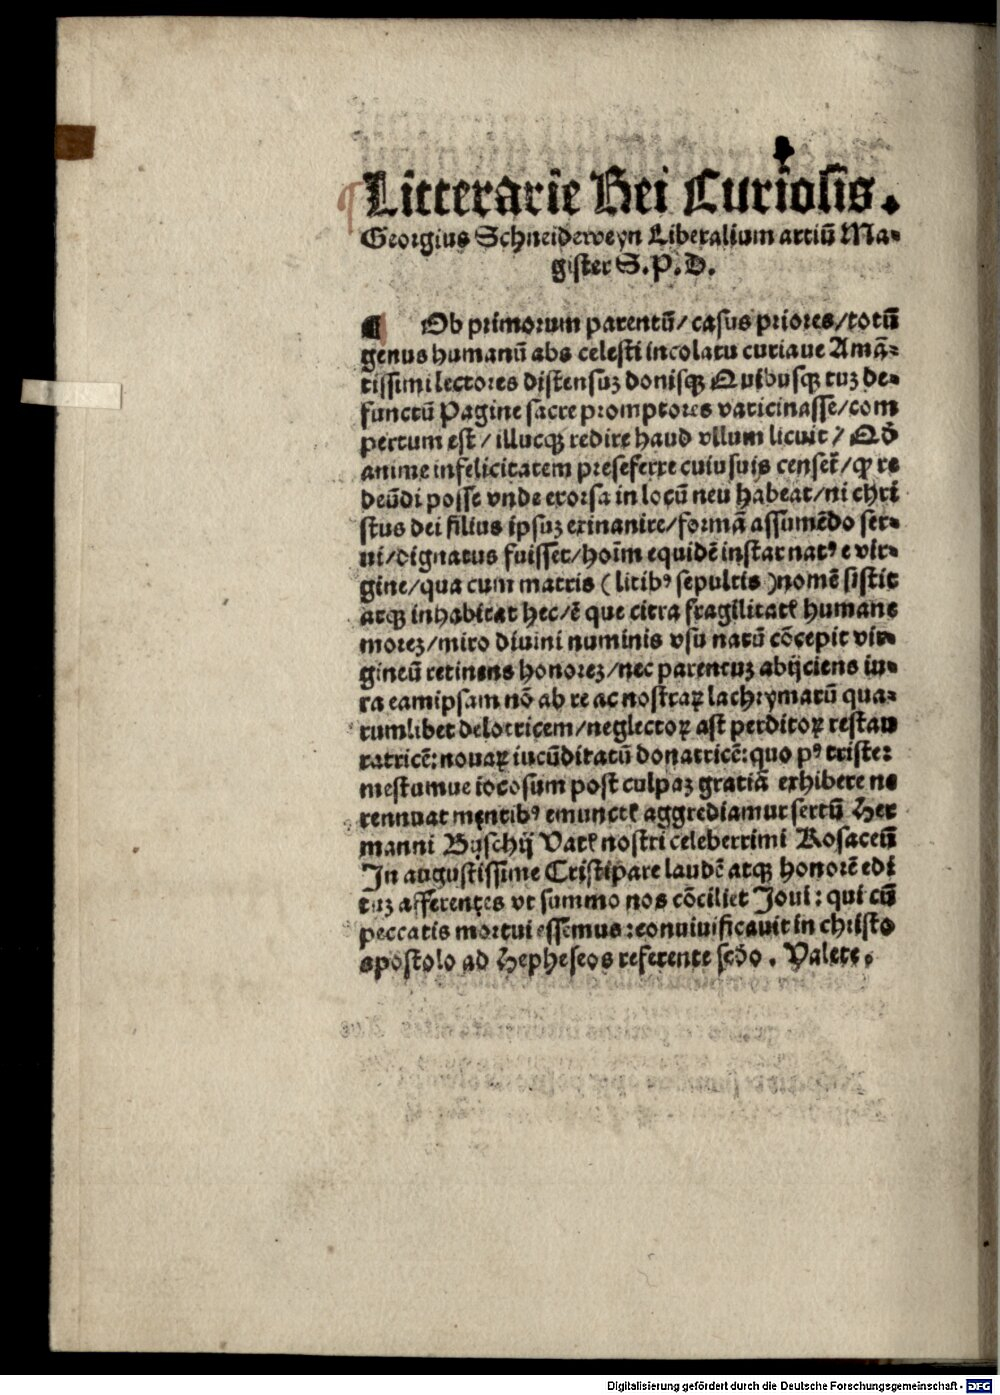 Litterarie Rei Curiosis.
Georgius Schneiderweyn Liberalium artiū Ma-
gister S.P.D.
¶ Ob primorum parentū/casus priores/totū
genus humanū abs celesti incolatu curiaue Amā-
tissimi lectores distensuz donisqꝫ Quibusqꝫ tuz de-
functū Pagine sacre promptores vaticinasse/com
pertum est/illucqꝫ redire haud vllum licuit/ Qđ
anime infelicitatem preseferre cuiusuis censet̄/ꝙ re
deūdi posse vnde exorsa in locū neu habeat/ni chri
stus dei filius ipsuz exinanire/formā assumēdo ser-
ui/dignatus fuisset/hoīm equidē instar natꝰ e vir-
gine/qua cum matris (litibꝰ sepultis) nomē sistit
atqꝫ inhabitat hec/ē que citra fragilitatꝭ humane
morez/miro diuini numinis vsu natū cōcepit vir-
gineū retinens honorez/nec parentuz abijciens iu-
ra eamipsam nō ab re ac nostraꝝ lachrymarū qua-
rumlibet delotricem/neglectoꝝ ast perditoꝝ restau
ratricē: nouaꝝ iucūditatū donatricē: quo pꝰ triste:
mestumue iocosum post culpaz gratiā exhibere ne
rennuat mentibꝰ emunctꝭ aggrediamur sertū Her
manni Buschij Vatꝭ nostri celeberrimi Rosaceū
In augustissime Cristipare laudē atqꝫ honorē edi
tuz afferentes vt summo nos cōciliet Joui: qui cū
peccatis mortui essemus: conuiuificauit in christo
apostolo ad Hepheseos referente scđo. Valete.
Digitalisierung gefördert durch die Deutsche Forschungsgemeinschaft - DFG